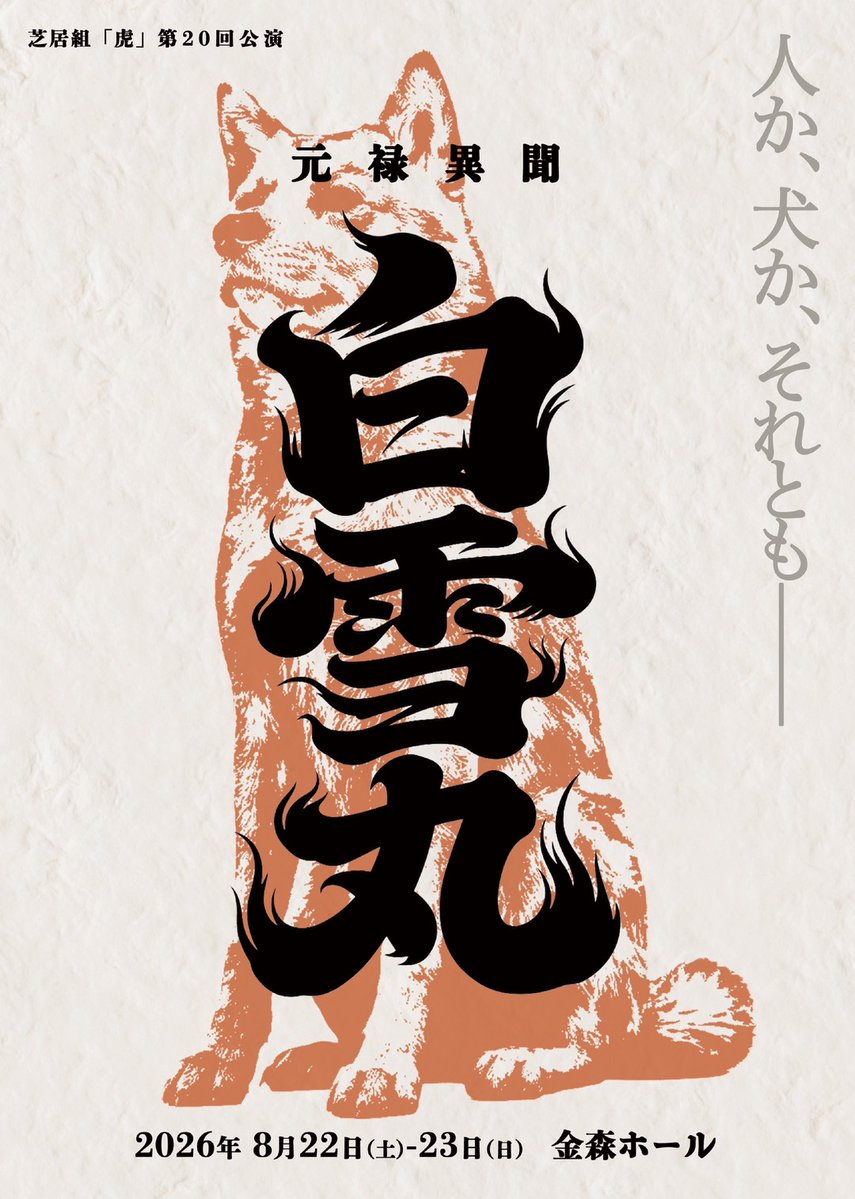 芝居組「虎」第20回公演
人か、犬か、それとも――
元禄異聞
白雪丸
2026年 8月22日(土)-23日(日) 金森ホール